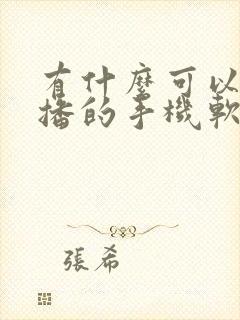 有什麼可以
播的手機軟
張希